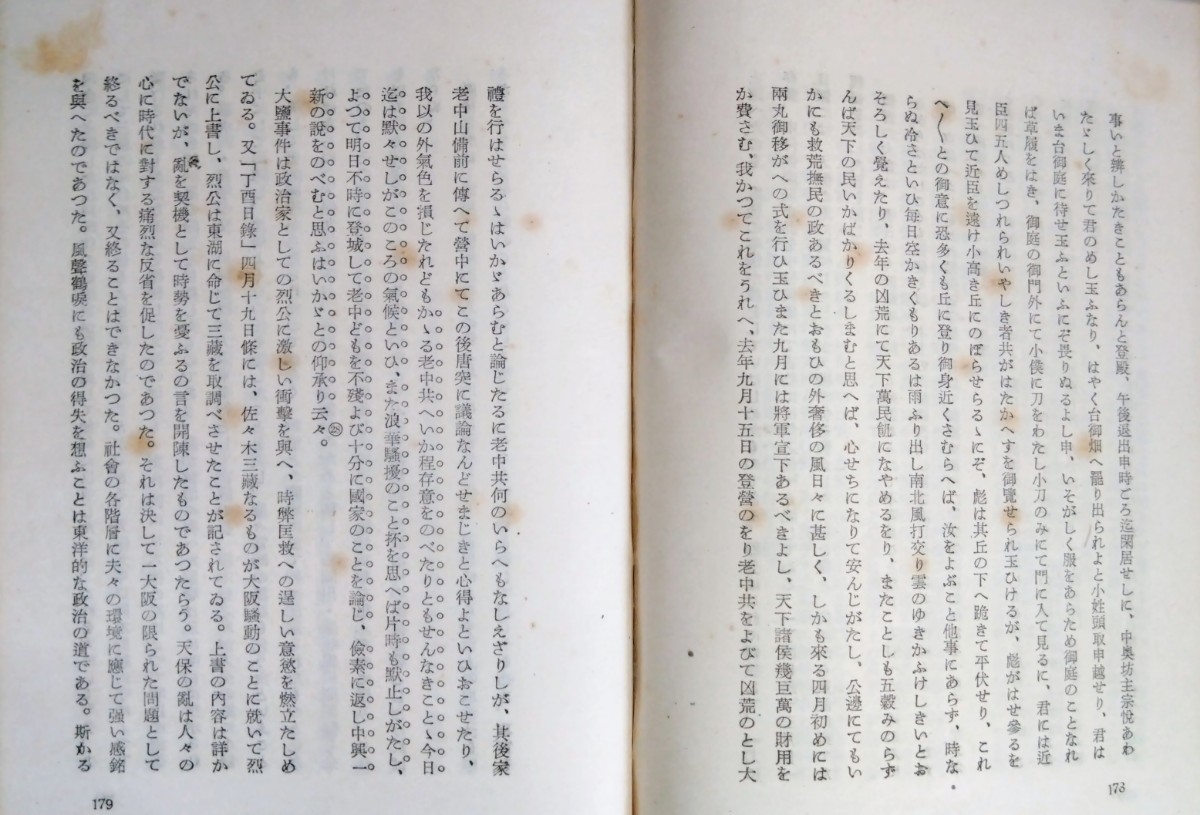 事いと辨しかたきこともあらんと登殿、午後退出申時ごろ迄閑居せしに、中奥坊主宗悅あわ
たゞしく來りて君のめし玉ふなり、はやく台御畑へ罷り出られよと小姓頭取申越せり、君は
いま台御庭に待せ玉ふといふにぞ畏りぬるよし申、いそがしく服をあらため御庭のことなれ
ば草履をはき、御庭の御門外にて小僕に刀をわたし小刀のみにて門に入て見るに、君には近
臣四五人めしつれられいやしき者共がはたかへすを御覽せられ玉ひけるが、彪がはせ參るを
見玉ひて近臣を遠け小高き丘にのぼらせらるゝにぞ、彪は其丘の下へ跪きて平伏せり、これ
へ〱との御意に恐多くも丘に登り御身近くさむらへば、汝をよぶこと他事にあらず、時な
らぬ冷さといひ毎日空かきくもりあるは雨ふり出し南北風打交り雲のゆきかふけしきいとお
そろしく覺えたり、去年の凶荒にて天下萬民飢になやめるをり、またことしも五穀みのらず
んば天下の民いかばかりくるしまむと思へば、心せちになりて安んじがたし、公邊にてもい
かにも救荒撫民の政あるべきとおもひの外奢侈の風日々に甚しく、しかも來る四月初めには
兩丸御移がへの式を行ひ玉ひまた九月には將軍宣下あるべきよし、天下諸侯幾巨萬の財用を
か費さむ、我かつてこれをうれへ、去年九月十五日の登營のをり老中共をよびて凶荒のとし大
178
禮を行はせらるゝはいかゞあらむと論じたるに老中共何のいらへもなしえざりしが、其後家
老中山備前に傳へて營中にてこの後唐突に議論なんどせまじきと心得よといひおこせたり、
我以の外氣色を損じたれどもかゝる老中共へいか程存意をのべたりともせんなきことゝ今日
迄は默々せしがこのころの氣候といひ、また浪華騷擾のこと抔を思へば片時も默止しがたし、
よつて明日不時に登城して老中どもを不殘よび十分に國家のことを論じ、儉素に返し中興一
新の說をのべむと思ふはいかゞとの仰承り云々。㉘
大鹽事件は政治家としての烈公に激しい衝擊を與へ、時弊匡救への逞しい意慾を燃立たしめ
てゐる。又「丁酉日錄」四月十九日條には、佐々木三藏なるものが大阪騷動のことに就いて烈
公に上書し、烈公は東湖に命じて三藏を取調べさせたことが記されてゐる。上書の內容は詳か
でないが、亂を契機として時勢を憂ふるの言を開陳したものであつたらう。天保の亂は人々の
心に時代に對する痛烈な反省を促したのであつた。それは決して一大阪の限られた問題として
終るべきではなく、又終ることはできなかつた。社會の各階層に夫々の環境に應じて强い感銘
を與へたのであつた。風聲鶴唳にも政治の得失を想ふことは東洋的な政治の道である。斯かる
179